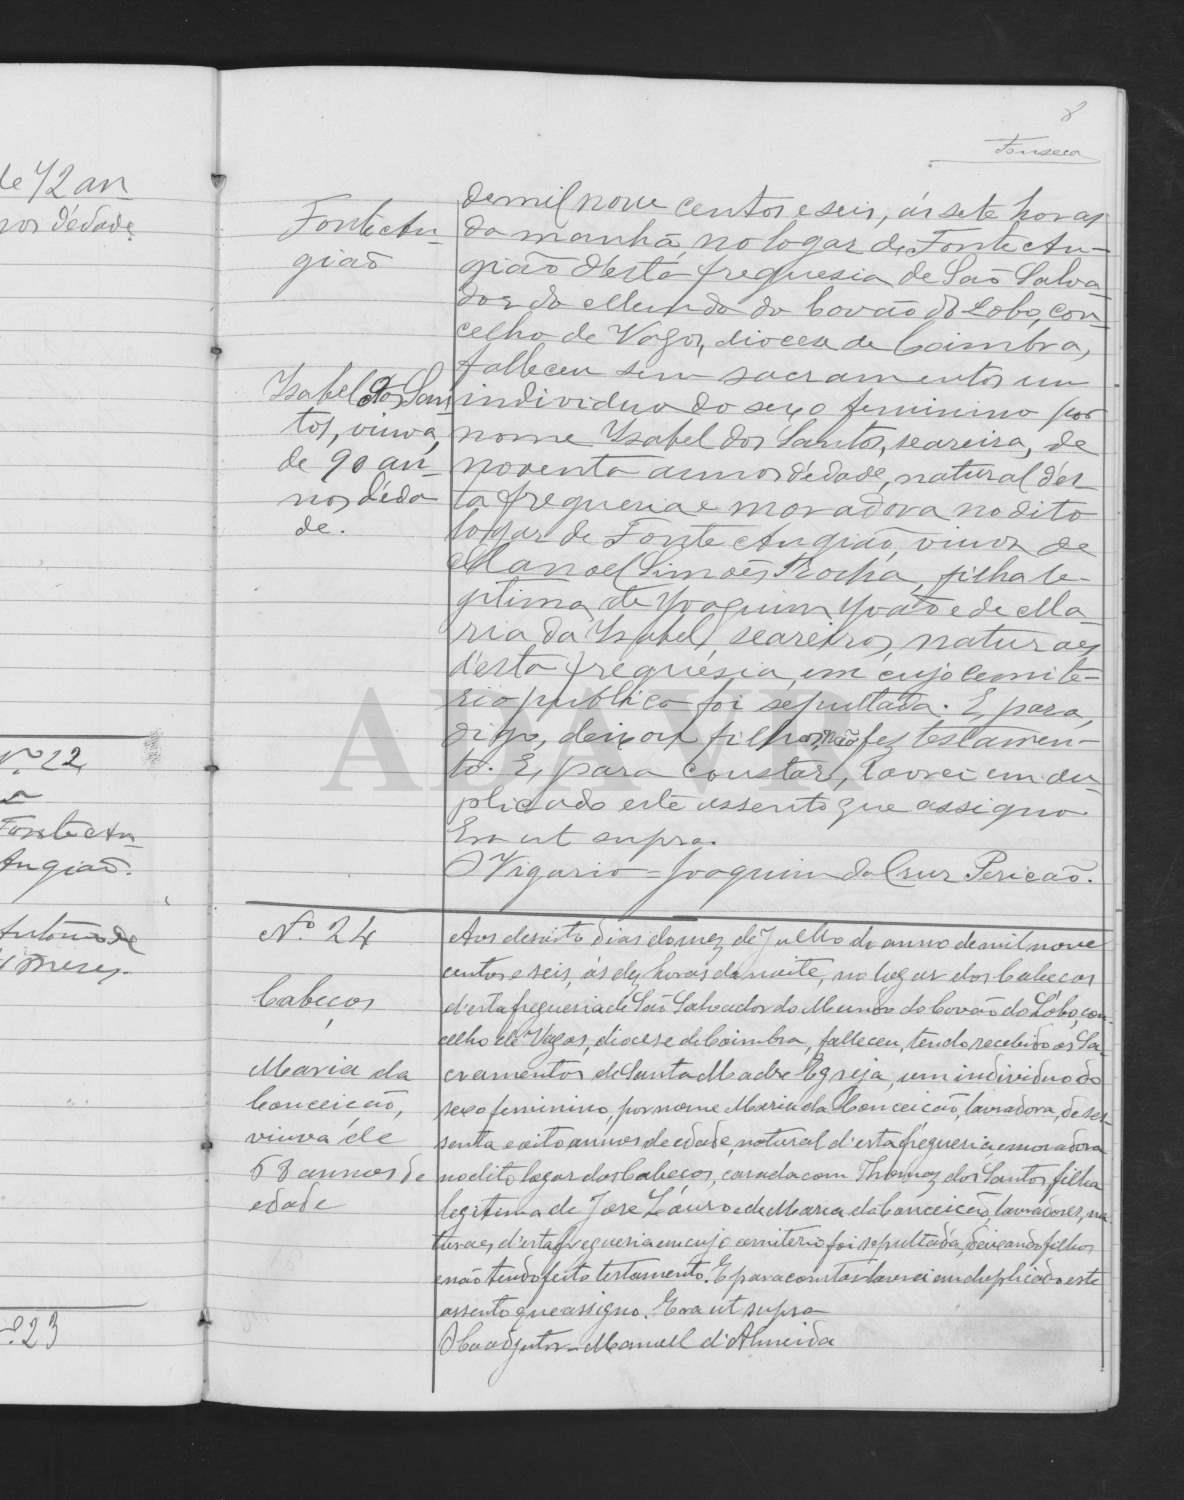 de 72 an
nos d'édade
Nº 22
Fonte An
Angião.
Antonio de
º 23
8
Fonseca
Fonte An-
gião
Isabel dos San
tos, viuva,
de 90 an-
nos d'eda
de.
de mil nove centos e seis, ás sete horas
da manhã, no logar de Fonte An-
gião d'esta freguesia de São Salva
dor do Mundo do Covão do Lobo, con-
celho de Vagos, diocese de Coimbra,
falleceu sem sacramentos um
individuo do sexo feminino por
nome Isabel dos Santos, seareira, de
noventa annos d'edade, natural d'es
ta freguesia e moradora no dito
logar de Fonte Angião, viuva de
Manoel Simões Rocha, filha le-
gitima de Joaquim João e de Ma-
ria da Isabel, seareiros, naturaes
d'esta freguesia, em cujo cemite-
rio publico foi sepultada. E, para,
digo, deixou filhos, não fez testamen-
to. E, para constar, lavrei em du-
plicado este assento que assigno.
Era ut supra.
O Vigario = Joaquim da Cruz Pericão.
ADAVR
Nº 24
Cabeços
Maria da
Conceicão,
viuva de
68 annos de
edade
Aos desoito dias do mez de Julho do anno de mil nove
centos e seis, ás dez horas da noite, no logar dos Cabeços
d'esta freguesia de São Salvador do Mundo do Covão do Lobo, con-
celho de Vagos, diocese de Coimbra, falleceu, tendo recebido os Sa-
cramentos de Santa Madre Egreja, um individuo do
sexo feminino, por nome Maria da Conceicão, lavradora, de ses-
senta e oito annos de edade, natural d'esta freguesia e moradora
no dito logar dos Cabeços, casada com Thomaz dos Santos, filha
legitima de José Láuro e de Maria da Conceicão, lavradores, na-
turaes d'esta freguesia em cujo cemiterio foi sepultada, deixando filhos
e não tendo feito testamento. E para constar lavrei em duplicado este
assento que assigno. Era ut supra
O Coadjutor - Manuel d'Almeida